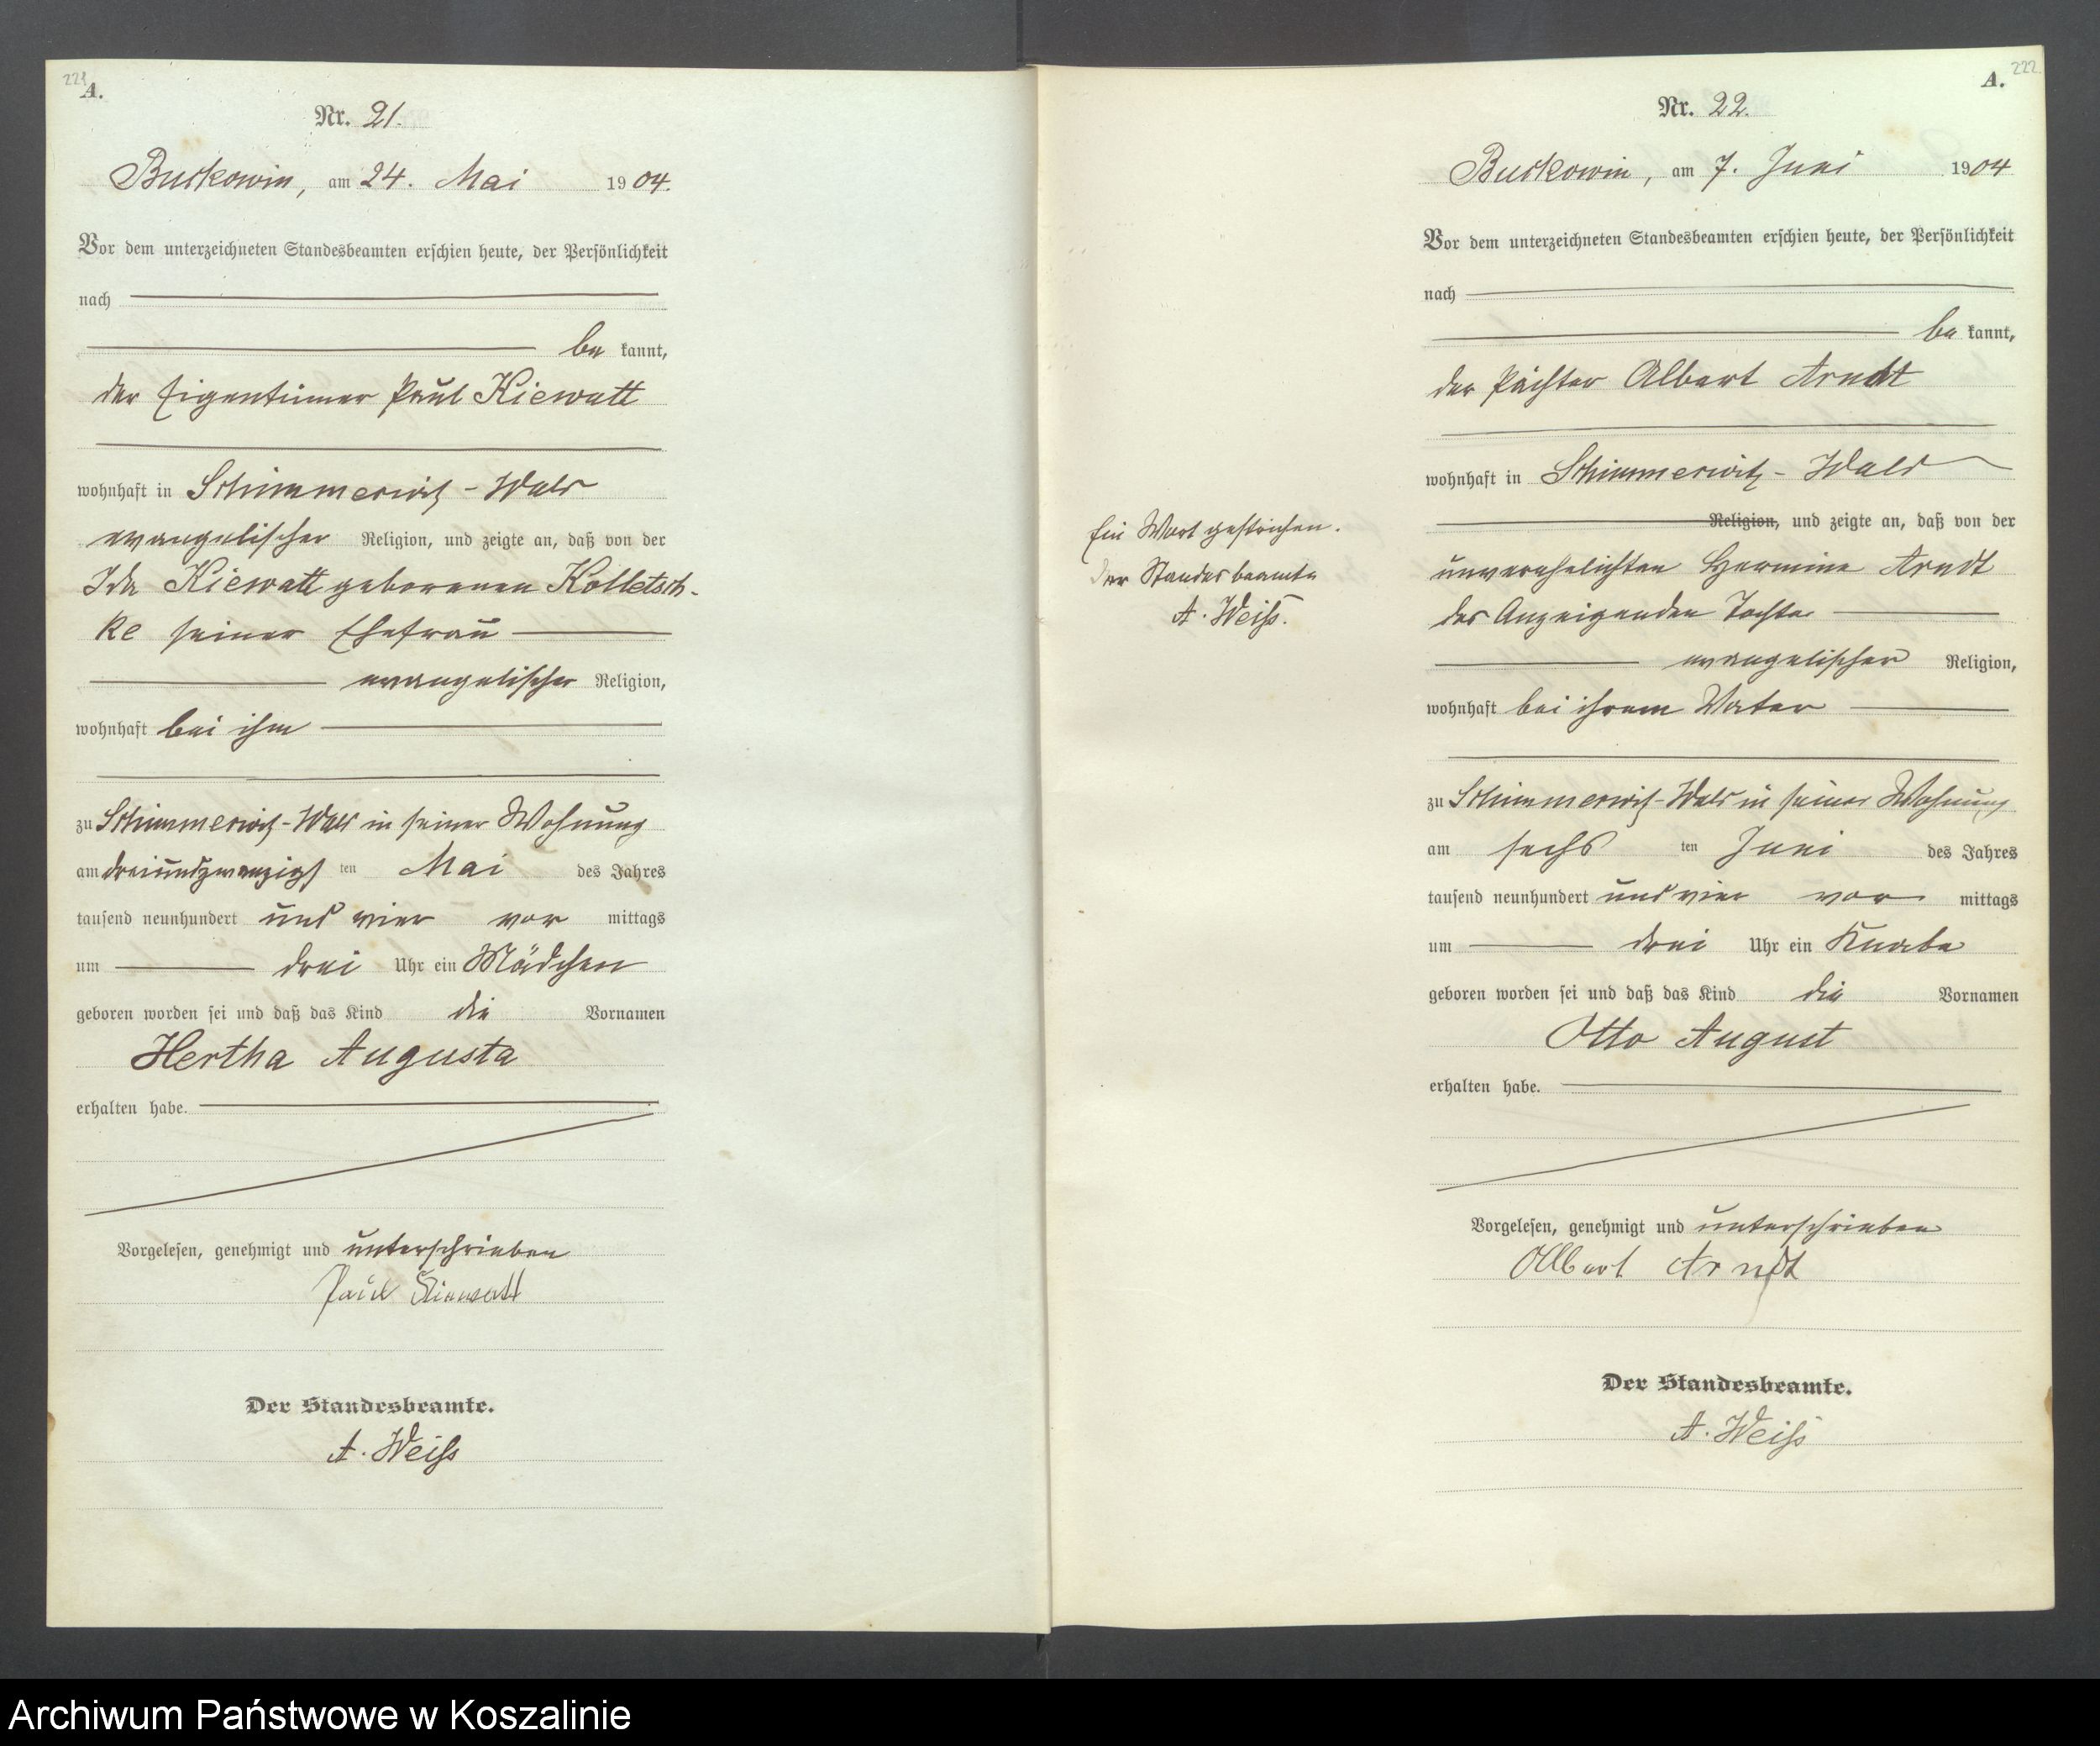 221
A.
Nr. 21.
Buckowin, am 24. Mai 1904.
Vor dem unterzeichneten Standesbeamten erschien heute, der Persönlichkeit
nach
be kannt,
der Eigentümer Paul Kiewatt
wohnhaft in Schimmerwitz-Wald
evangelischer Religion, und zeigte an, daß von der
Ida Kiewatt geborenen Kolletsch-
ke seiner Ehefrau
evangelischer Religion,
wohnhaft bei ihm
zu Schimmerwitz-Wald in seiner Wohnung
am dreiundzwanzigsten Mai des Jahres
tausend neunhundert und vier vor mittags
um drei Uhr ein Mädchen
geboren worden sei und daß das Kind die Vornamen
Hertha Augusta
erhalten habe.
Vorgelesen, genehmigt und unterschrieben
Paul Kiewatt
Der Standesbeamte.
A. Weiß
222
A.
Nr. 22.
Buckowin, am 7. Juni 1904
Vor dem unterzeichneten Standesbeamten erschien heute, der Persönlichkeit
nach
be kannt,
der Pächter Albert Arndt
wohnhaft in Schimmerwitz-Wald
Religion, und zeigte an, daß von der
unverehelichten Hermine Arndt
des Anzeigenden Tochter
evangelischer Religion,
wohnhaft bei ihrem Vater
zu Schimmerwitz-Wald in seiner Wohnung
am sechsten Juni des Jahres
tausend neunhundert und vier vor mittags
um drei Uhr ein Knabe
geboren worden sei und daß das Kind die Vornamen
Otto August
erhalten habe.
Vorgelesen, genehmigt und unterschrieben
Albert Arndt
Der Standesbeamte.
A. Weiß
Ein Wort gestrichen.
Der Standesbeamte
A. Weiß.
Archiwum Państwowe w Koszalinie